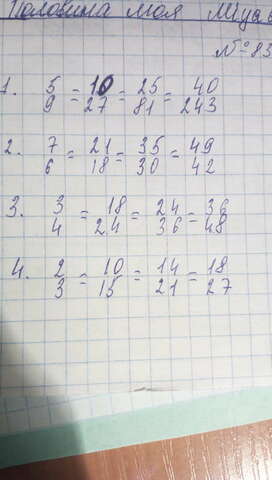 Половина моя
№ 83
1. 5/9 = 10/27 = 25/81 = 40/243
2. 7/6 = 21/18 = 35/30 = 49/42
3. 3/4 = 18/24 = 24/36 = 36/48
4. 2/3 = 10/15 = 14/21 = 18/27